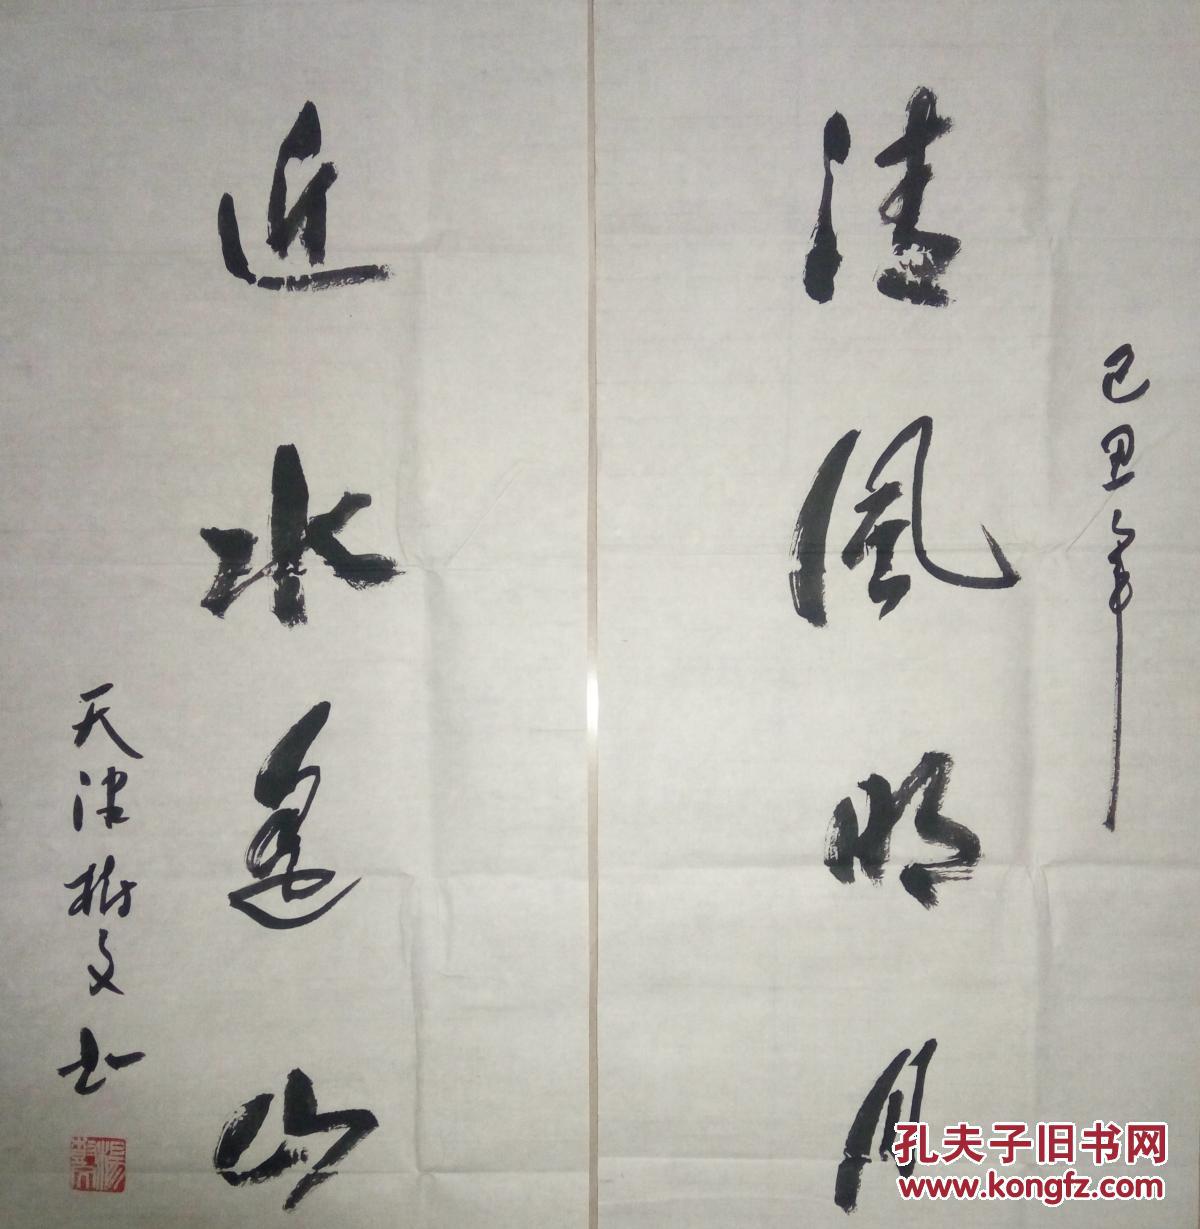 己丑年
清风明月
近水遥山
天津树文书
孔夫子旧书网
www.kongfz.com